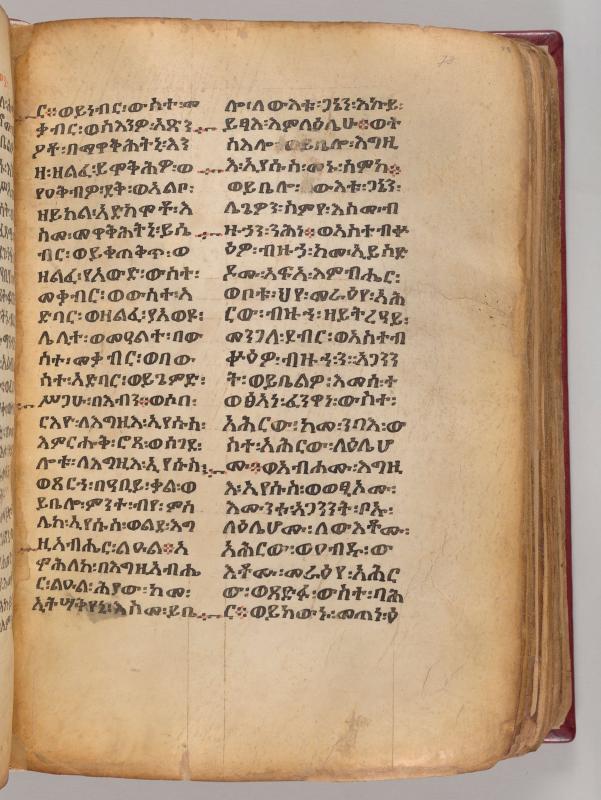 ር፡፡ወይነብር፡ውስተ፡መ
ቃብር፡ወስእንዎ፡አጽን
ዖቶ፡በመዋቅሕትኒ፡እን
ዘ፡ዘልፈ፡ይሞቅሕዎ፡ወ
የዐቅብዎ፡ደቅ፡ወአልቦ፡
ዘይክል፡አድክሞቶ፡እ
ስመ፡መዋቅሕትኒ፡ይሴ
ብር፡ወይቀጠቅጥ፡ወ
ዘልፈ፡የአውድ፡ውስተ፡
መቃብር፡ወውስተ፡አ
ድባር፡ወዘልፈ፡ያአወዩ፡
ሌሊተ፡ወመዓልተ፡በው
ስተ፡መቃብር፡ወበው
ስተ፡አድባር፡ወይጌምድ፡
ሥጋሁ፡በእብን፡፡ወሶበ፡
ርእዮ፡ለእግዚእ፡ኢየሱስ፡
እምርሑቅ፡ሮጸ፡ወሰገደ፡
ሎቱ፡ለእግዚእ፡ኢየሱስ፡
ወጸርኀ፡በዓቢይ፡ቃል፡ወ
ይቤሎ፡ምንተ፡ብየ፡ምስ
ሌከ፡ኢየሱስ፡ወልደ፡እግ
ዚአብሔር፡ልዑል፡፡አ
ምሕለከ፡በእግዚአብሔ
ር፡ልዑል፡ሕያው፡ከመ፡
ኢትሣቅየኒ፡እስመ፡ይቤ
ሎ፡ለውእቱ፡ጋኔን፡እኩይ፡
ይፃእ፡እምላዕሌሁ፡፡ወተ
ስእሎ፡ወይቤሎ፡እግዚ
እ፡ኢየሱስ፡መኑ፡ስምከ፡፡
ወይቤሎ፡ውእቱ፡ጋኔን፡
ሌጌዎን፡ስምየ፡እስመ፡ብ
ዙኃን፡ንሕነ፡፡ወአስተብቍ
ዕዎ፡ብዙኃ፡ከመ፡ኢይስድ
ዶሙ፡አፍአ፡እምብሔር፡
ወቦቱ፡ህየ፡መራዕየ፡አሕ
ርው፡ብዙኃ፡ዘይትረዓይ፡
መንገለ፡ደብር፡ወአስተብ
ቍዕዎ፡ብዙኃን፡አጋንን
ት፡ወይቤልዎ፡እመሰተ
ወፅፅአነ፡ፈንዋነ፡ውስተ፡
አሕርው፡ከመ፡ንባእ፡ው
ስተ፡አሕርው፡ላዕሌሆ
ሙ፡፡ወአብሐሙ፡እግዚ
እ፡ኢየሱስ፡ወወፂኦሙ፡
እሙንቱ፡አጋንንት፡ቦኡ፡
ላዕሌሆሙ፡ለውእቶሙ፡
አሕርው፡ወዐብዱ፡ው
እቶሙ፡መራዕየ፡አሕር
ው፡ወጸድፉ፡ውስተ፡ባሕ
ር፡፡ወይከውኑ፡መጠነ፡ዕ